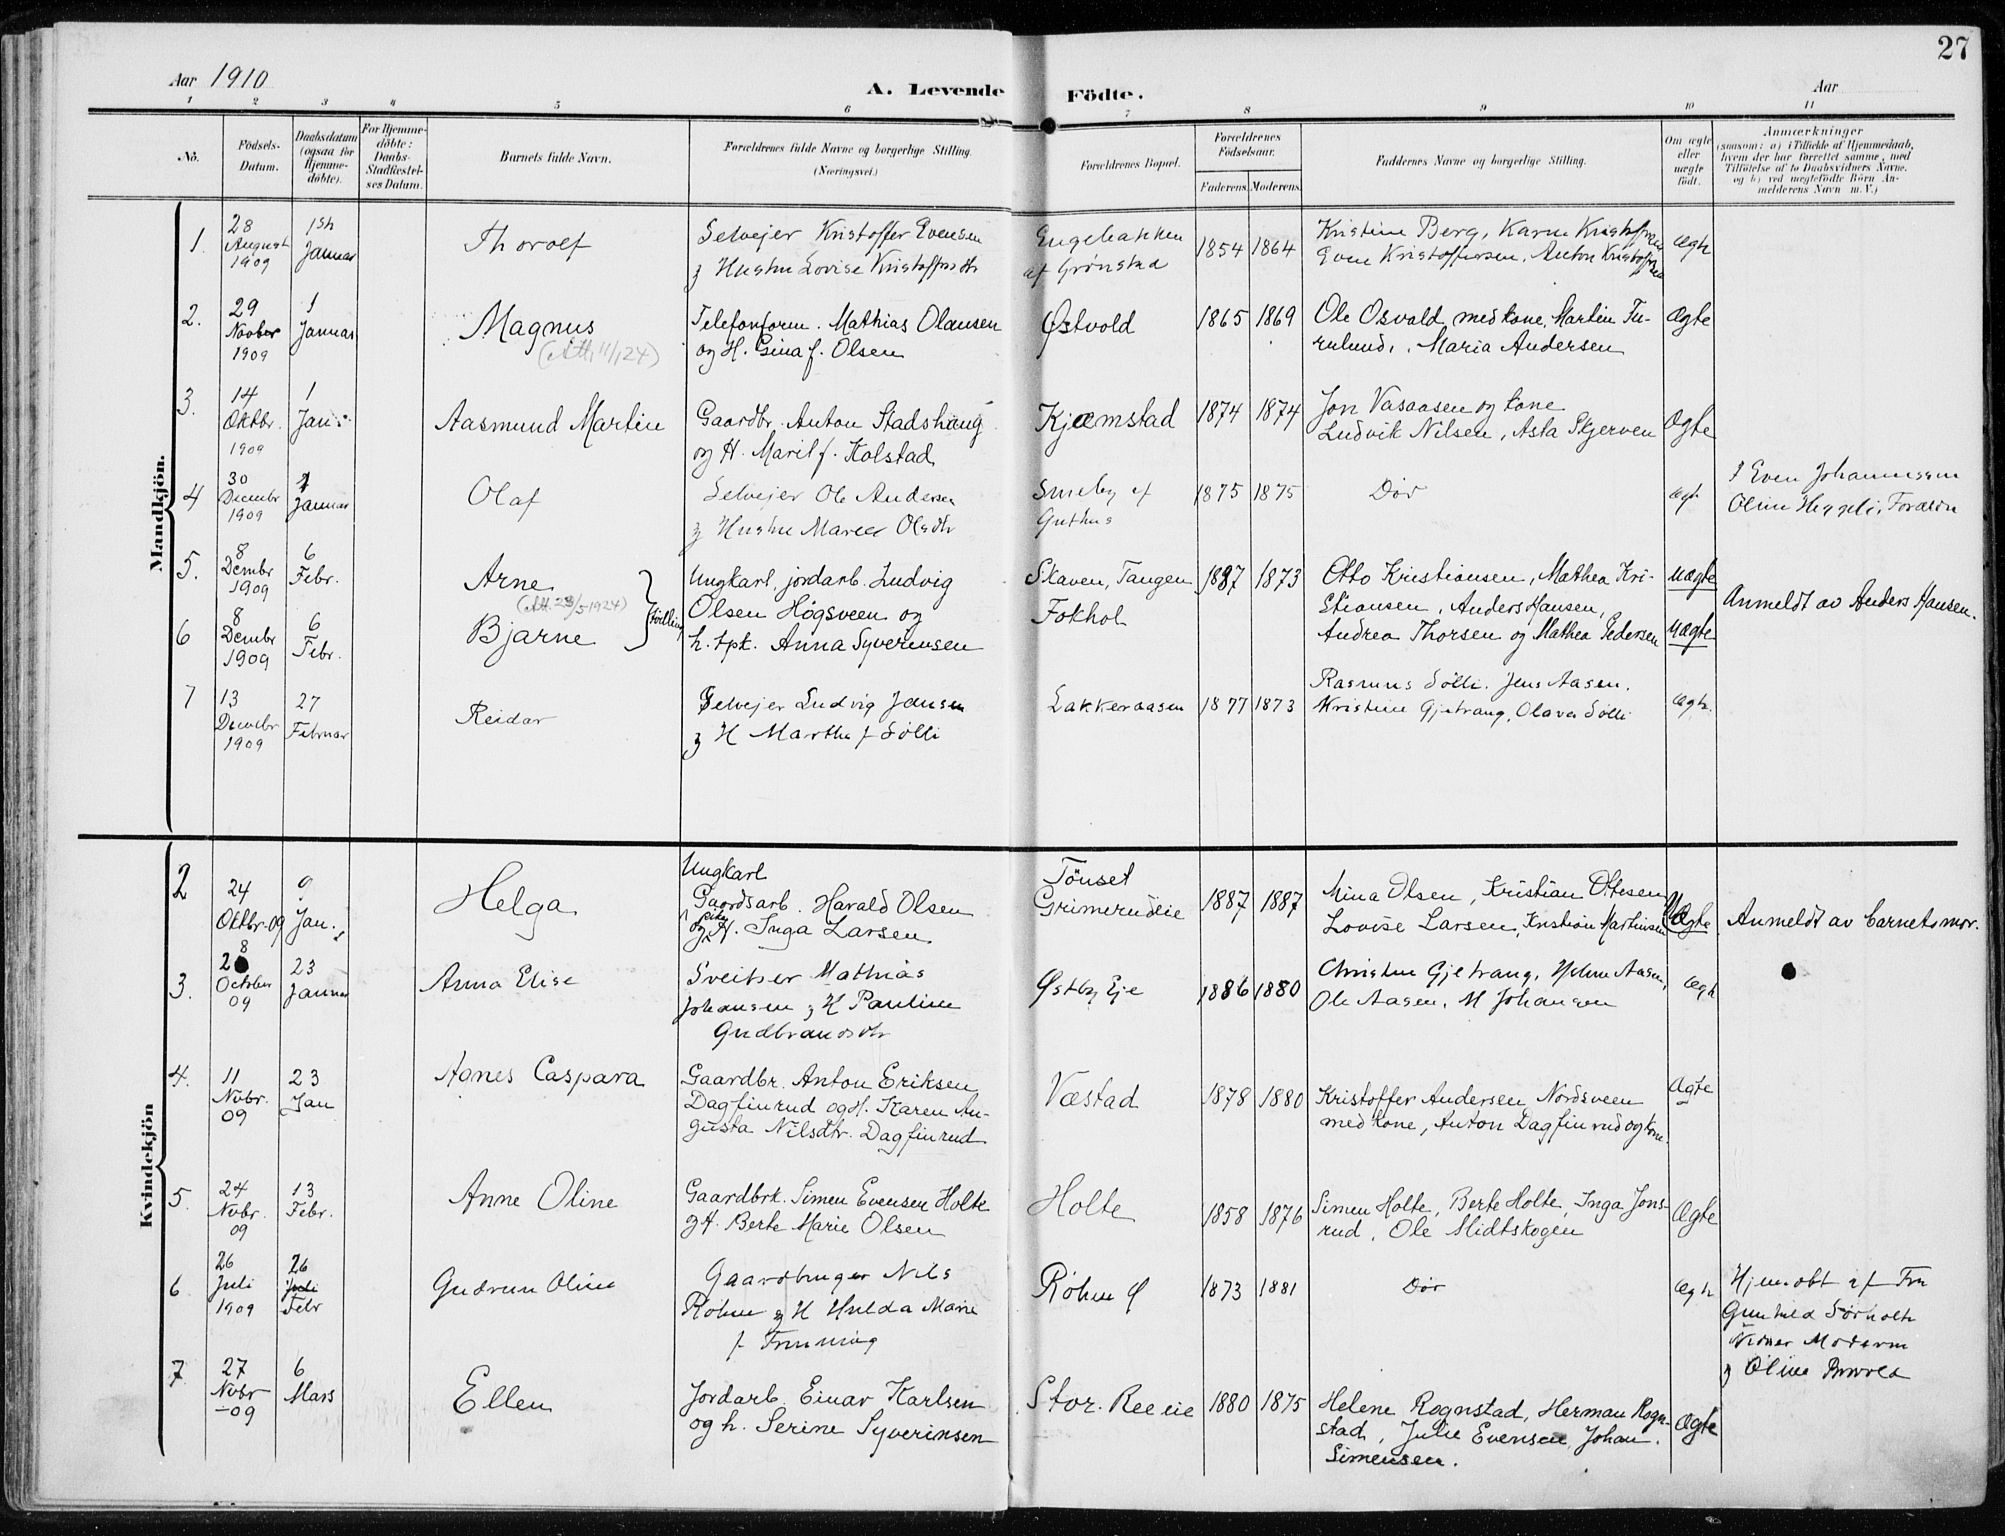 27
Aar 1910
A. Levende Födte.
Aar
1 2 3 4 5 6 7 8 9 10 11
No.
Födsels-
Datum.
Daabsdatum
(ogsaa for
Hjemme-
döbte).
For Hjemme-
döbte:
Daabs-
Stadfæstel-
ses Datum.
Barnets fulde Navn.
Forældrenes fulde Navne og borgerlige Stilling.
(Næringsvei.)
Forældrenes Bopæl.
Forældrenes
Födselsaar.
Faderens. Moderens.
Faddernes Navne og borgerlige Stilling.
Om ægte
eller
uægte
født.
Anmærkninger
(saasom: a) i Tilfælde af Hjemmedaab,
hvem der har forrettet samme, med
Tilföielse af to Daabsvidners Navne,
og b) ved uægtefödte Börn An-
melderens Navn m. V.)
Mandkjön.
1.
28
August
1909
1st
Januar
Thorolf
Selvejer Kristoffer Evensen
og Hustru Lovise Kristoffersdtr
Engebakken
af Grønstad
1854 1864
Kristine Berg, Karen Kristoffersen
Even Kristoffersen, Anton Kristoffersen
ægte
2.
29
Novbr
1909
1
Januar
Magnus
(Att. 11/1 24)
Telefonform. Mathias Olausen
og H. Gina f. Olsen
Østvold
1865 1869
Ole Osvald med kone, Martin Fu-
rulund, Maria Andersen
Ægte
3.
14
Oktbr.
1909
1
Jan
Aasmund Martin
Gaardbr. Anton Stadshaug
og H. Marit f. Kolstad
Kjæmstad
1874 1874
Jon Vasaasen og kone
Ludvik Nilsen, Asta Skjerven
Ægte
4
30
Decembr
1909
1
Januar
Olaf
Selvejer Ole Andersen
og Hustru Maren Olsdtr
Smeby af
Guthus
1875 1875
Dør
ægt.
Even Johannessen
Oline Heggeli, Foræld
5.
8
Dcembr
1909
6
Febr.
Arne
(Att. 28/5 1924)
Tvilling
Ungkarl, jordarb. Ludvig
Olsen Högsveen og
h. tpk. Anna Syverinsen
Skaven, Tangen
Fokhol
1887 1873
Otto Kristiansen, Mathea Kri-
stiansen, Anders Hansen,
Andrea Thorsen og Mathea Pedersen
Uægte
Anmeldt av Anders Hansen.
6
8
Dcembr
1909
6
Febr.
Bjarne
Uægte
7
13
Decebr
1909
27
Februar
Reidar
Selvejer Ludvig Jansen
og H Marthe f Sölli
Lakkeraasen
1877 1873
Rasmus Sölli. Jens Aasen.
Kristine Gjetrang, Olava Sölli
ægte.
Kvindekjön
2
24
Oktbr. 09
9
Jan.
Helga
Ungkarl
Gaardsarb. Harald Olsen
og pike H. Inga Larsen
Tönset
Grimerudeie
1887 1887
Mina Olsen, Kristian Ottesen
Lovise Larsen, Kristian Martinsen
UÆgte
Anmeldt av barnets mor.
3.
28
October
09
23
Januar
Anna Elise
Sveitser Mathias
Johansen og H Pauline
Gudbrandsdtr
Østby Eje
1886 1880
Christine Gjetrang, Helene Aasen,
Ole Aasen, M Johansen
ægt
4.
11
Nvbr.
09
23
Jan
Agnes Caspara
Gaardbr. Anton Eriksen
Dagfinrud og H. Karen Au-
gusta Nilsdtr. Dagfinrud
Væstad
1878 1880
Kristoffer Andersen Nordsveen
med kone, Anton Dagfinrud og kone.
Ægte
5.
24
Nvbr.
09
13
Febr.
Anne Oline
Gaardbrk. Simen Evensen Holte
og H. Berte Marie Olsen
Holte
1858 1876
Simen Holte, Berte Holte, Inga Jons-
rud, Ole Midtskogen
Ægte
6
26
Juli
1909
26
Juli
Febr
Gudrun Oline
Gaardbruger Nils
Röhm og H Hulda Marie
f
Röhm Ø
1873 1881
Dör
ægte
Hjemdöbt af Fru
Gunhild Sørholte
Vidner Moderen
og Oline
7
27
Nvbr
-09
6
Mars
Ellen
Jordarb. Einar Karlsen
og h. Serine Syverinsen
Stor-Ree eie
1880 1875
Helene Rognstad, Herman Rogn-
stad, Julie Evensen, Johan
Simensen.
Ægte